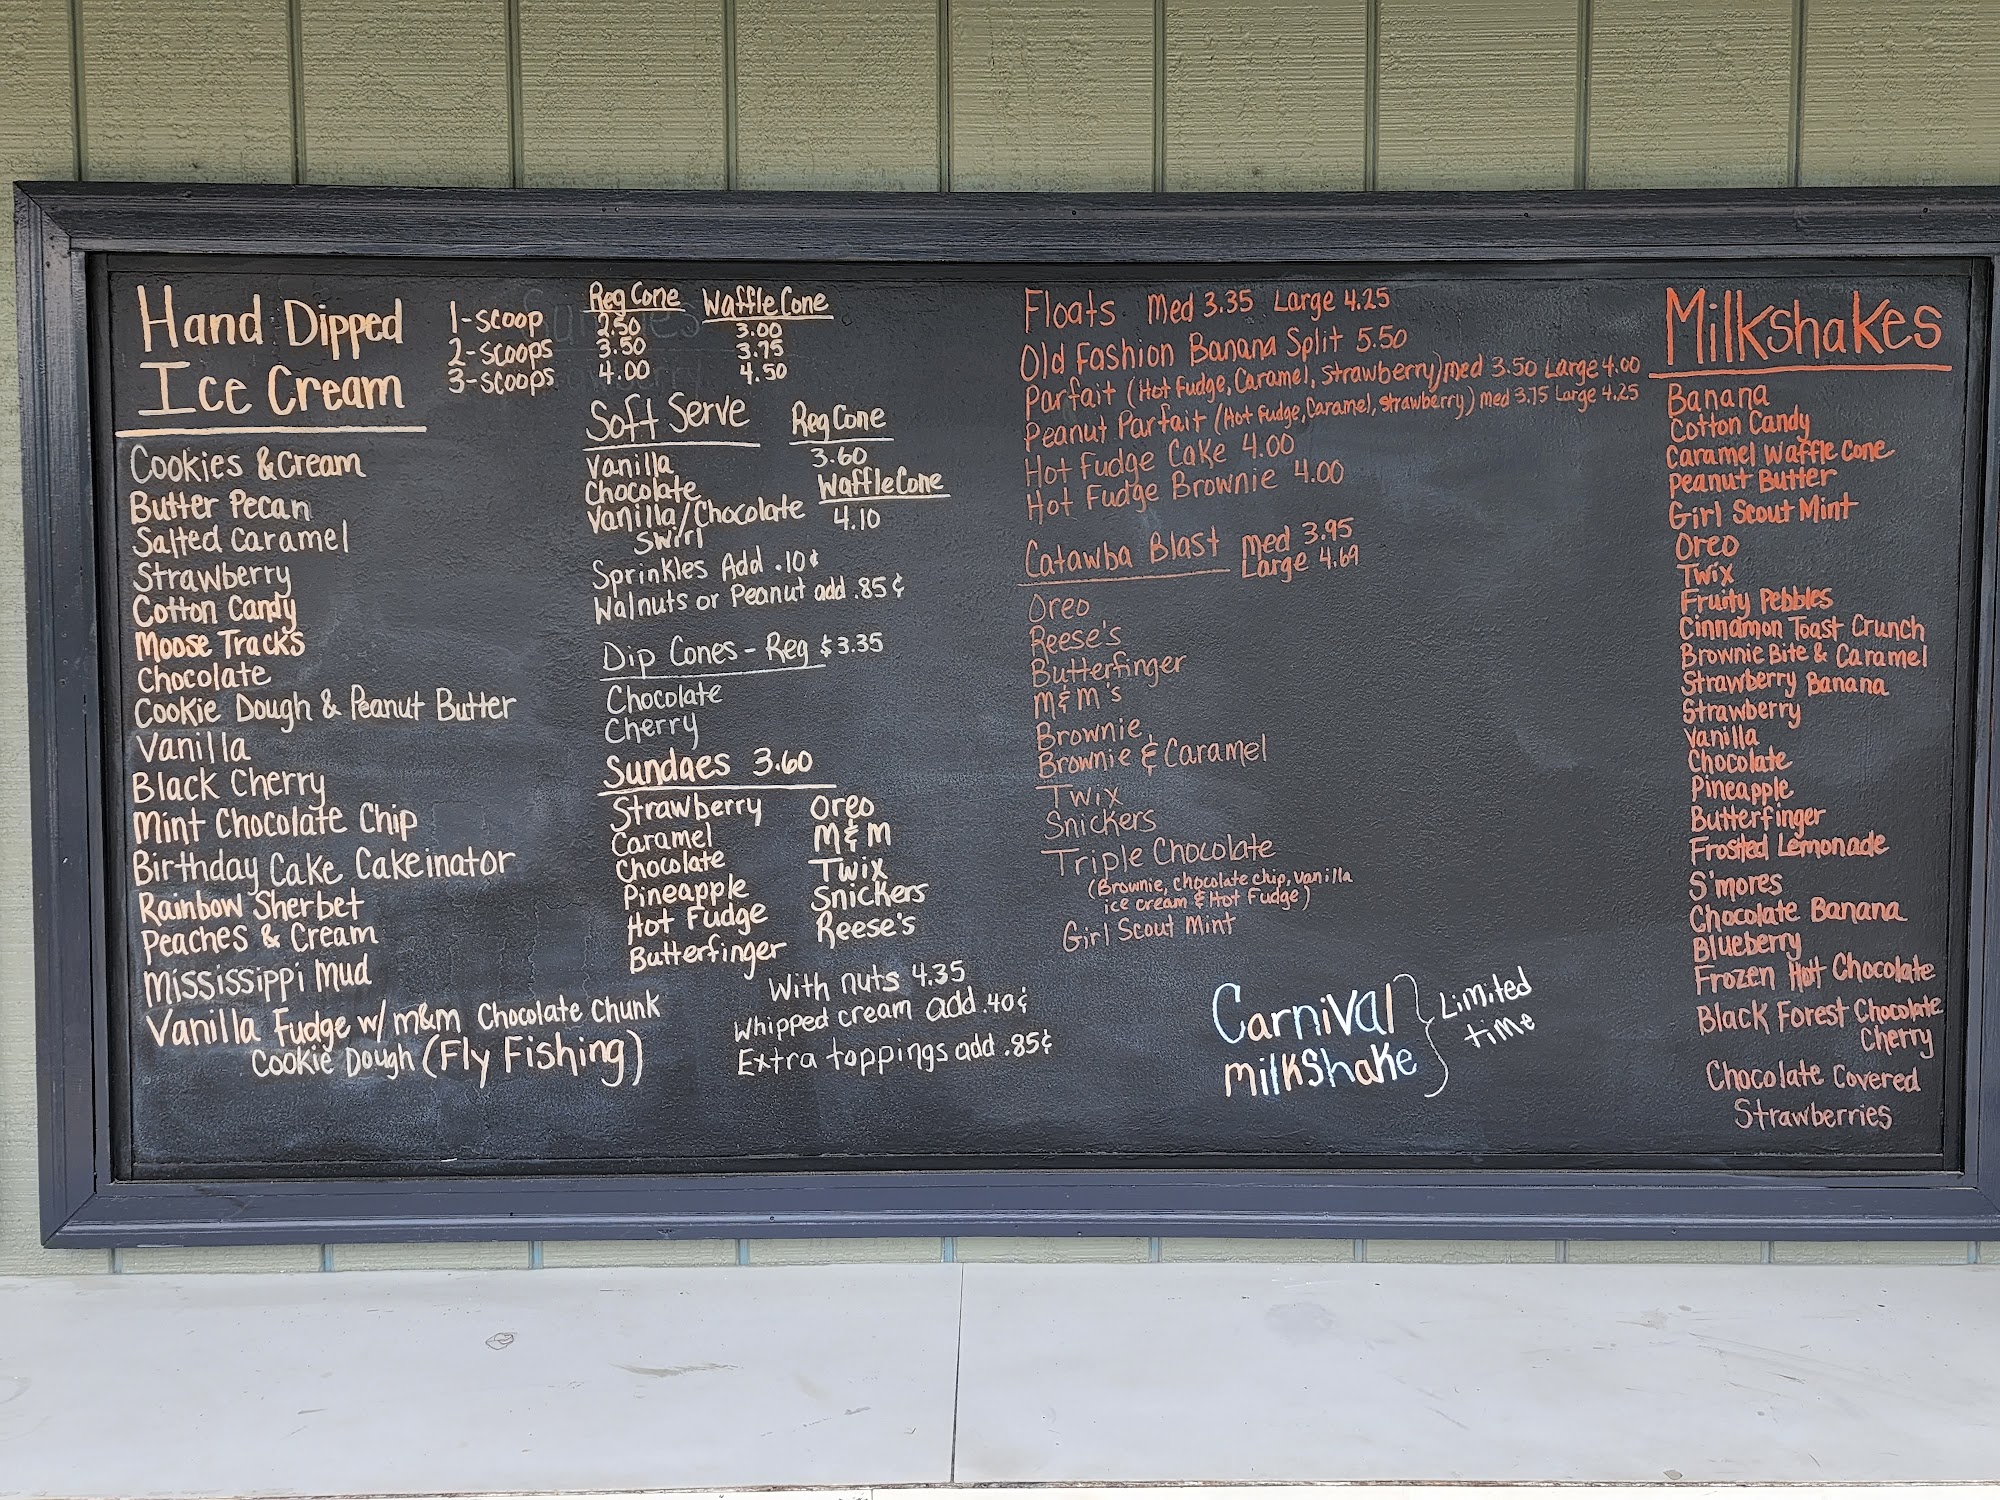 Hand Dipped
Ice Cream
Cookies & Cream
Butter Pecan
Salted Caramel
Strawberry
Cotton Candy
Moose Tracks
Chocolate
Cookie Dough & Peanut Butter
Vanilla
Black Cherry
Mint Chocolate Chip
Birthday Cake Cakeinator
Rainbow Sherbet
Peaches & Cream
Mississippi Mud
Vanilla Fudge w/ m&m Chocolate Chunk
Cookie Dough (Fly Fishing)
Reg Cone Waffle Cone
1-scoop 2.50 3.00
2-scoops 3.50 3.75
3-scoops 4.00 4.50
Soft Serve Reg Cone
Vanilla 3.60
Chocolate Waffle Cone
Vanilla/Chocolate 4.10
Swirl
Sprinkles Add .10¢
Walnuts or Peanut add .85¢
Dip Cones - Reg $3.35
Chocolate
Cherry
Sundaes 3.60
Strawberry Oreo
Caramel M&M
Chocolate Twix
Pineapple Snickers
Hot Fudge Reese's
Butterfinger
With nuts 4.35
Whipped cream add .40¢
Extra toppings add .85¢
Floats Med 3.35 Large 4.25
Old Fashion Banana Split 5.50
Parfait (Hot Fudge, Caramel, Strawberry) med 3.50 Large 4.00
Peanut Parfait (Hot Fudge, Caramel, Strawberry) med 3.75 Large 4.25
Hot Fudge Cake 4.00
Hot Fudge Brownie 4.00
Catawba Blast med 3.95
Large 4.69
Oreo
Reese's
Butterfinger
M&M's
Brownie
Brownie & Caramel
Twix
Snickers
Triple Chocolate
(Brownie, chocolate chip, vanilla
ice cream & Hot Fudge)
Girl Scout Mint
Carnival
milkshake
Limited
time
Milkshakes
Banana
Cotton Candy
Caramel Waffle Cone
Peanut Butter
Girl Scout Mint
Oreo
Twix
Fruity Pebbles
Cinnamon Toast Crunch
Brownie Bite & Caramel
Strawberry Banana
Strawberry
Vanilla
Chocolate
Pineapple
Butterfinger
Frosted Lemonade
S'mores
Chocolate Banana
Blueberry
Frozen Hot Chocolate
Black Forest Chocolate
Cherry
Chocolate Covered
Strawberries